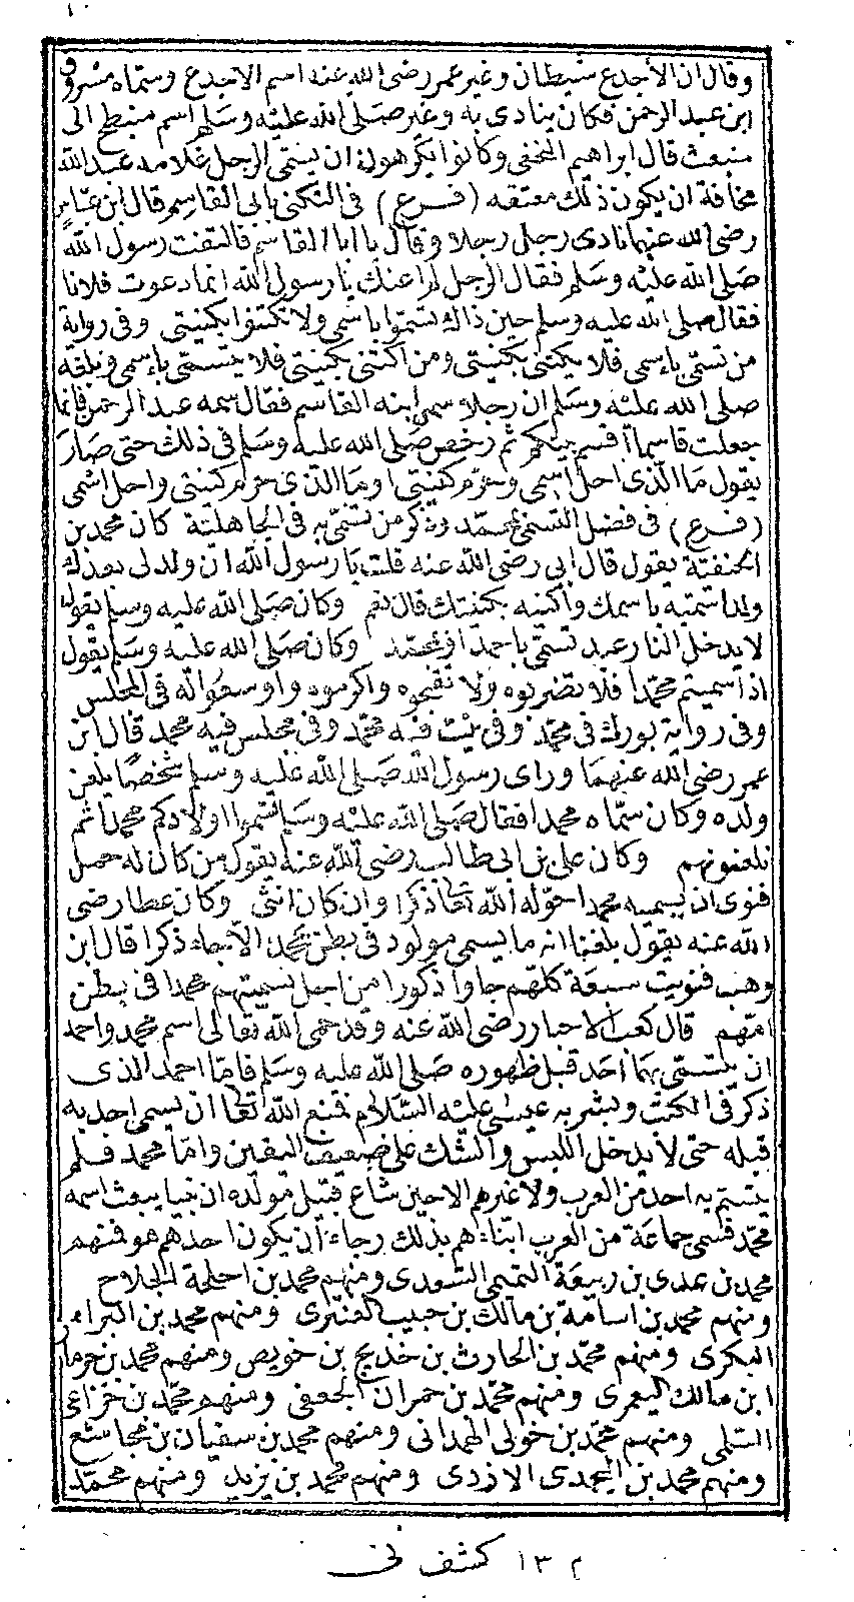 وقال ان الأجدع شيطان وغير عمر رضى الله عنه اسم الاجدع وسماه مسروق
ابن عبد الرحمن فكان ينادى به وغير صلى الله عليه وسلم اسم منبطح الى
منبعث قال ابراهيم النخعى وكانوا يكرهون ان يسمى الرجل غلامه عبد الله
مخافة ان يكون ذلك معتقه (فرع) فى التكنى بابى القاسم قال ابن عباس
رضى الله عنهما نادى رجل رجلا وقال يا ابا القاسم فالتفت رسول الله
صلى الله عليه وسلم فقال الرجل لم اعنك يا رسول الله انما دعوت فلانا
فقال صلى الله عليه وسلم حين ذاك تسموا باسمى ولا تكتنوا بكنيتى وفى رواية
من تسمى باسمى فلا يكتنى بكنيتى ومن اكتنى بكنيتى فلا يتسمى باسمى وبلغه
صلى الله عليه وسلم ان رجلا سمى ابنه القاسم فقال سمه عبد الرحمن فانما
جعلت قاسما اقسم بينكم ثم رخص صلى الله عليه وسلم فى ذلك حتى صار
يقول ما الذى احل اسمى وحرم كنيتى او ما الذى حرم كنيتى واحل اسمى
(فرع) فى فضل التسمى بمحمد وذكر من تسمى به فى الجاهلية كان محمد بن
الحنفية يقول قال ابى رضى الله عنه قلت يا رسول الله ان ولد لى بعدك
ولد اسميه باسمك واكنيه بكنيتك قال نعم وكان صلى الله عليه وسلم يقول
لا يدخل النار عبد تسمى باحمد او محمد وكان صلى الله عليه وسلم يقول
اذا سميتم محمدا فلا تضربوه ولا تقبحوه واكرموه واوسعوا له فى المجلس
وفى رواية بورك فى محمد وفى بيت فيه محمد وفى مجلس فيه محمد قال ابن
عمر رضى الله عنهما وراى رسول الله صلى الله عليه وسلم شخصا يلعن
ولده وكان سماه محمدا فقال صلى الله عليه وسلم تسموا اولادكم محمدا ثم
تلعنونهم وكان على بن ابى طالب رضى الله عنه يقول من كان له حمل
فنوى ان يسميه محمدا حوله الله تعالى ذكرا وان كان انثى وكان عطا رضى
الله عنه يقول بلغنا انه ما يسمى مولود فى بطن بمحمد الا جاء ذكرا قال ابن
وهب فنويت سبعة كلهم جاوا ذكورا من اجل تسميتهم محمدا فى بطن
امهم قال كعب الاحبار رضى الله عنه وقد حمى الله تعالى اسم محمد واحمد
ان يتسمى بهما احد قبل ظهوره صلى الله عليه وسلم فاما احمد الذى
ذكر فى الكتب وبشر به عيسى عليه السلام فمنع الله تعالى ان يسمى احد به
قبله حتى لا يدخل اللبس والشك على ضعيف اليقين واما محمد فلم
يتسم به احد من العرب ولا غيرهم الا حين شاع قبيل مولده ان نبيا يبعث اسمه
محمد فسمى جماعة من العرب ابناءهم بذلك رجاء ان يكون احدهم هو فمنهم
محمد بن عدى بن ربيعة التميمى السعدى ومنهم محمد بن احيحة الجلاح
ومنهم محمد بن اسامة بن مالك بن حبيب العنبرى ومنهم محمد بن البراء
البكرى ومنهم محمد بن الحارث بن خديج بن حويص ومنهم محمد بن حرماز
ابن مالك اليعمرى ومنهم محمد بن حمران الجعفى ومنهم محمد بن خزاعى
السلمى ومنهم محمد بن خولى الهمدانى ومنهم محمد بن سفيان بن مجاشع
ومنهم محمد بن اليحمدى الازدى ومنهم محمد بن يزيد ومنهم محمد
١٣ كشف نى